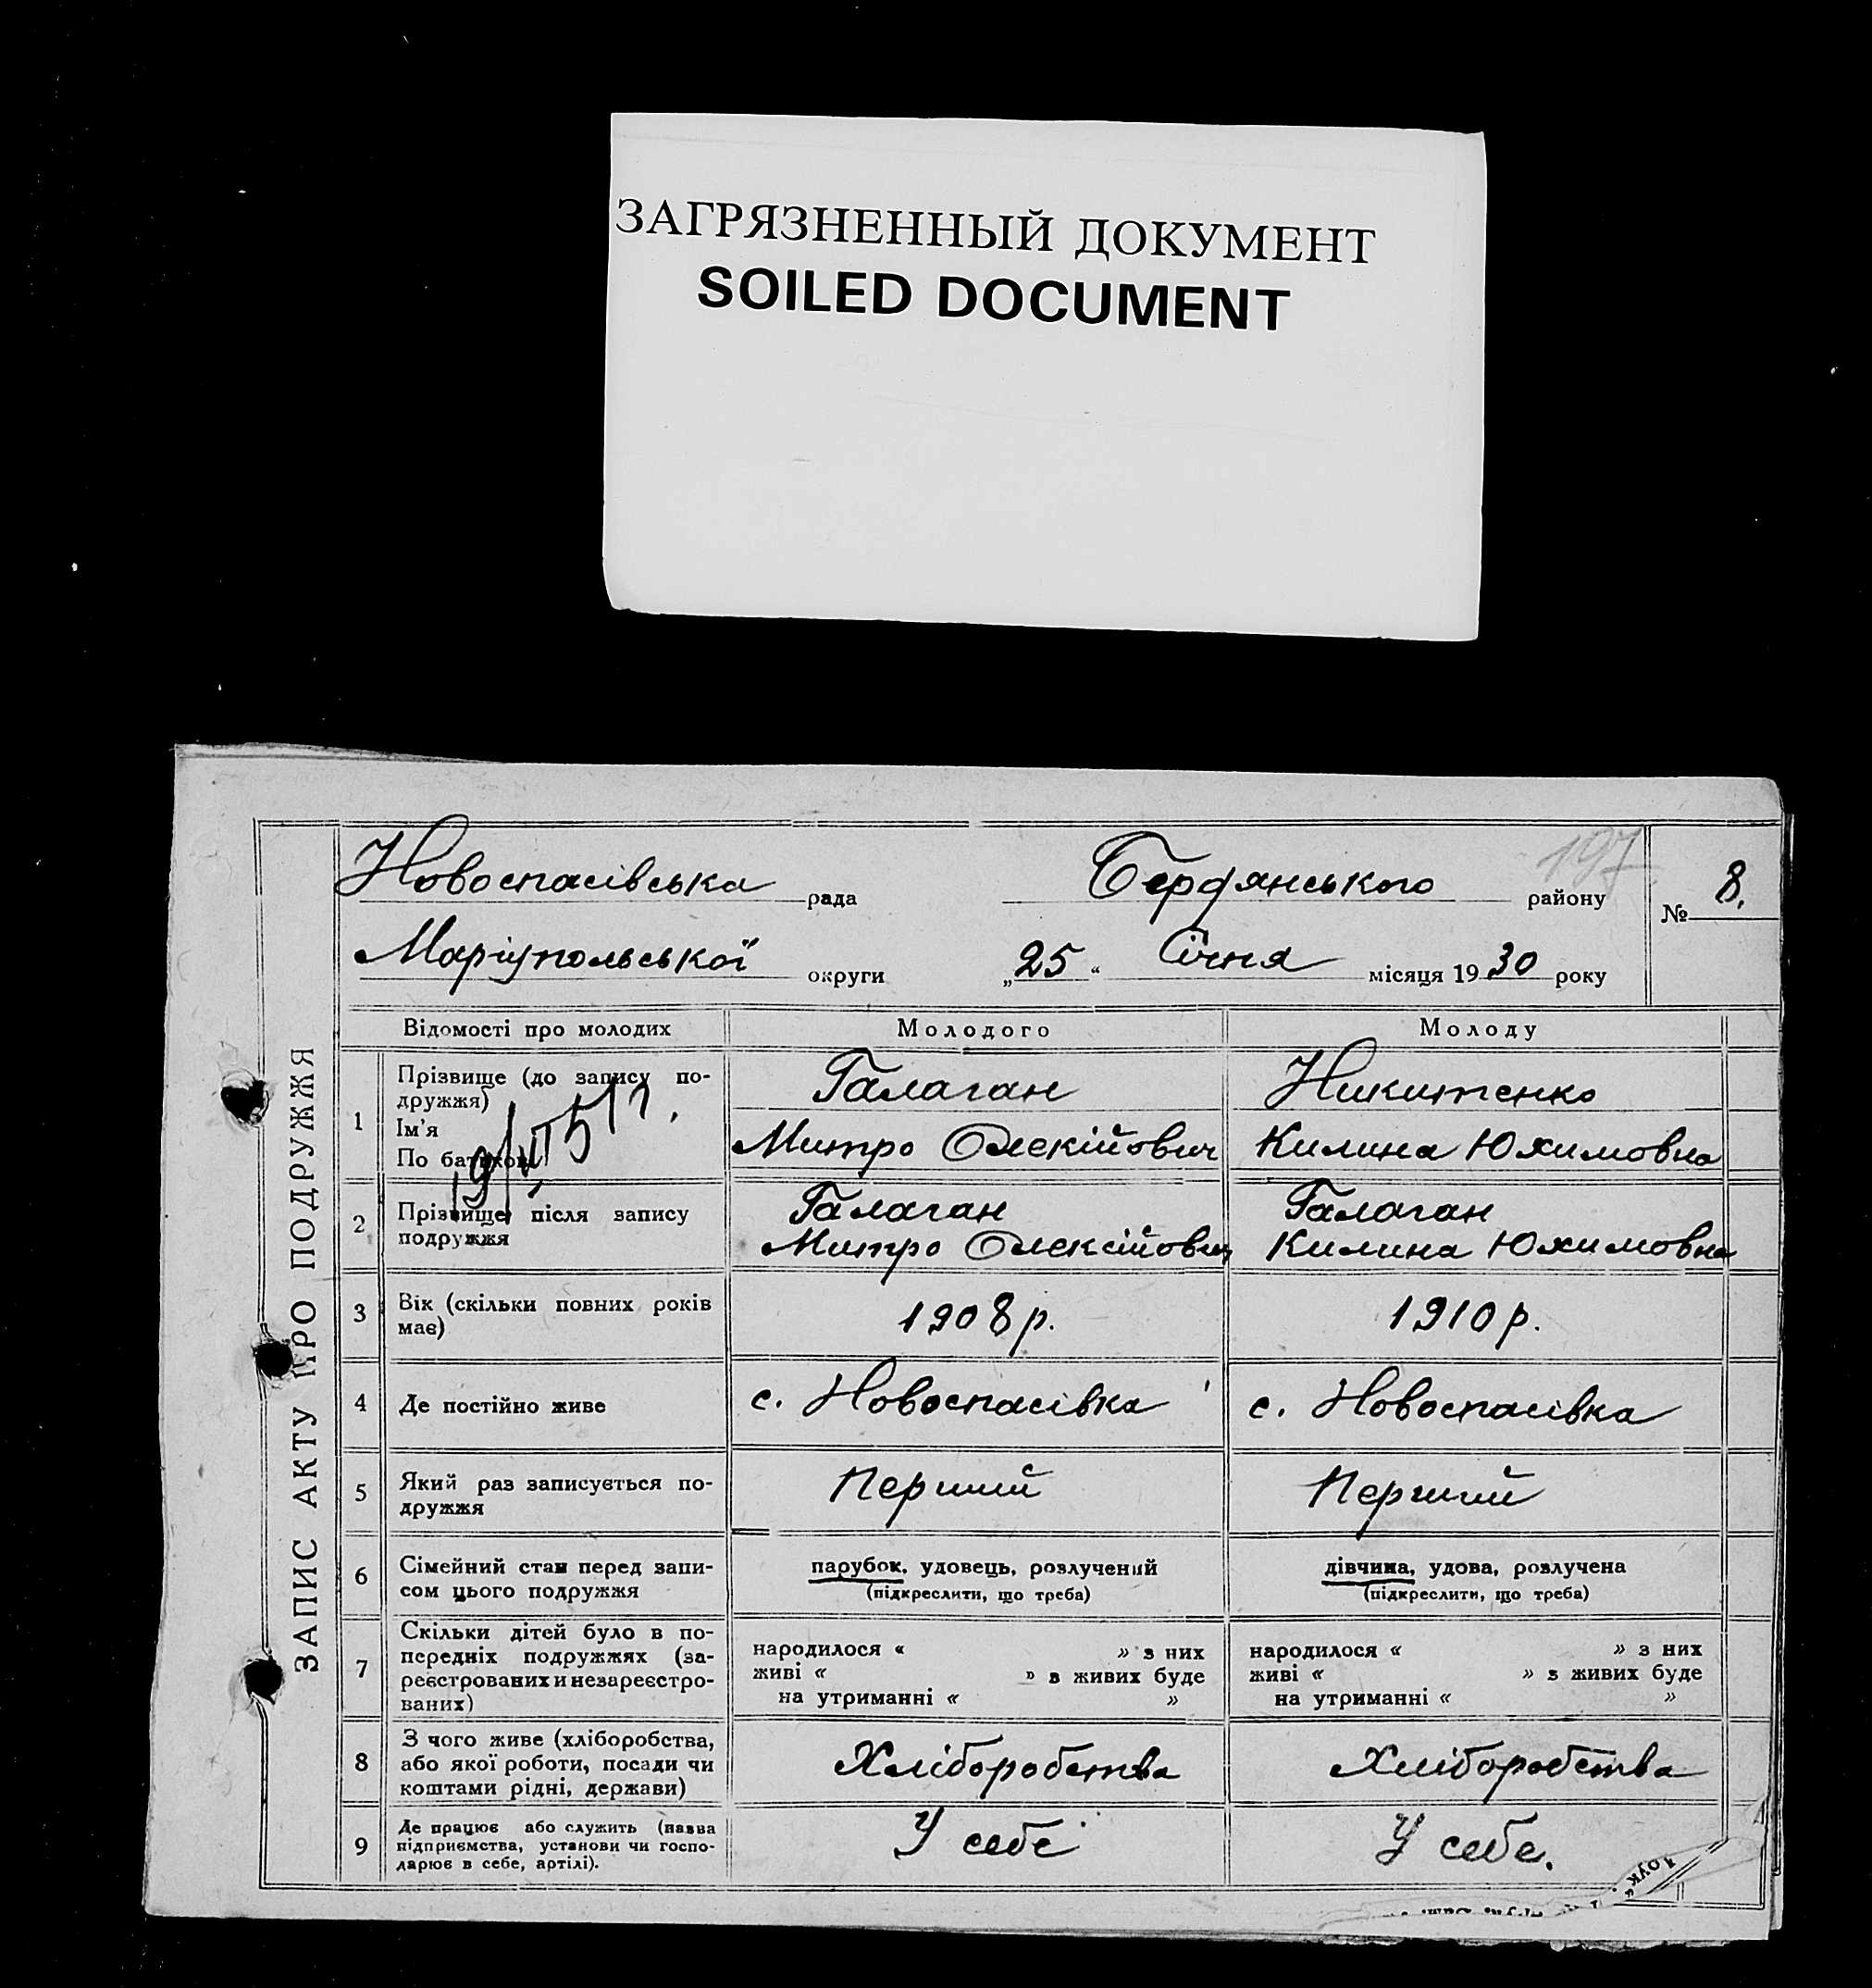 ЗАГРЯЗНЕННЫЙ ДОКУМЕНТ
SOILED DOCUMENT
ЗАПИС АКТУ ПРО ПОДРУЖЖЯ
197
Новоспасівська рада Бердянського району № 8.
Маріупольської округи „25“ Січня місяця 1930 року
Відомості про молодих Молодого Молоду
1 Прізвище (до запису по-
дружжя)
Ім'я
По батькові
Галаган Никитенко
Митро Олекійович Килина Юхимовна
2 Прізвище після запису
подружжя
Галаган Галаган
Митро Олексійович Килина Юхимовна
3 Вік (скільки повних років
має)
1908 р. 1910 р.
4 Де постійно живе с. Новоспасівка с. Новоспасівка
5 Який раз записується по-
дружжя
Перший Перший
6 Сімейний стан перед запи-
сом цього подружжя
парубок, удовець, розлучений дівчина, удова, розлучена
(підкреслити, що треба) (підкреслити, що треба)
7 Скільки дітей було в по-
передніх подружжях (за-
реєстрованих и незареєстро-
ваних)
народилося « » з них народилося « » з них
живі « » з живих буде живі « » з живих буде
на утриманні « » на утриманні « »
8 З чого живе (хліборобства,
або якої роботи, посади чи
коштами рідні, держави)
Хліборобства Хліборобства
9 Де працює або служить (назва
підприємства, установи чи госпо-
дарює в себе, артілі).
У себе У себе.